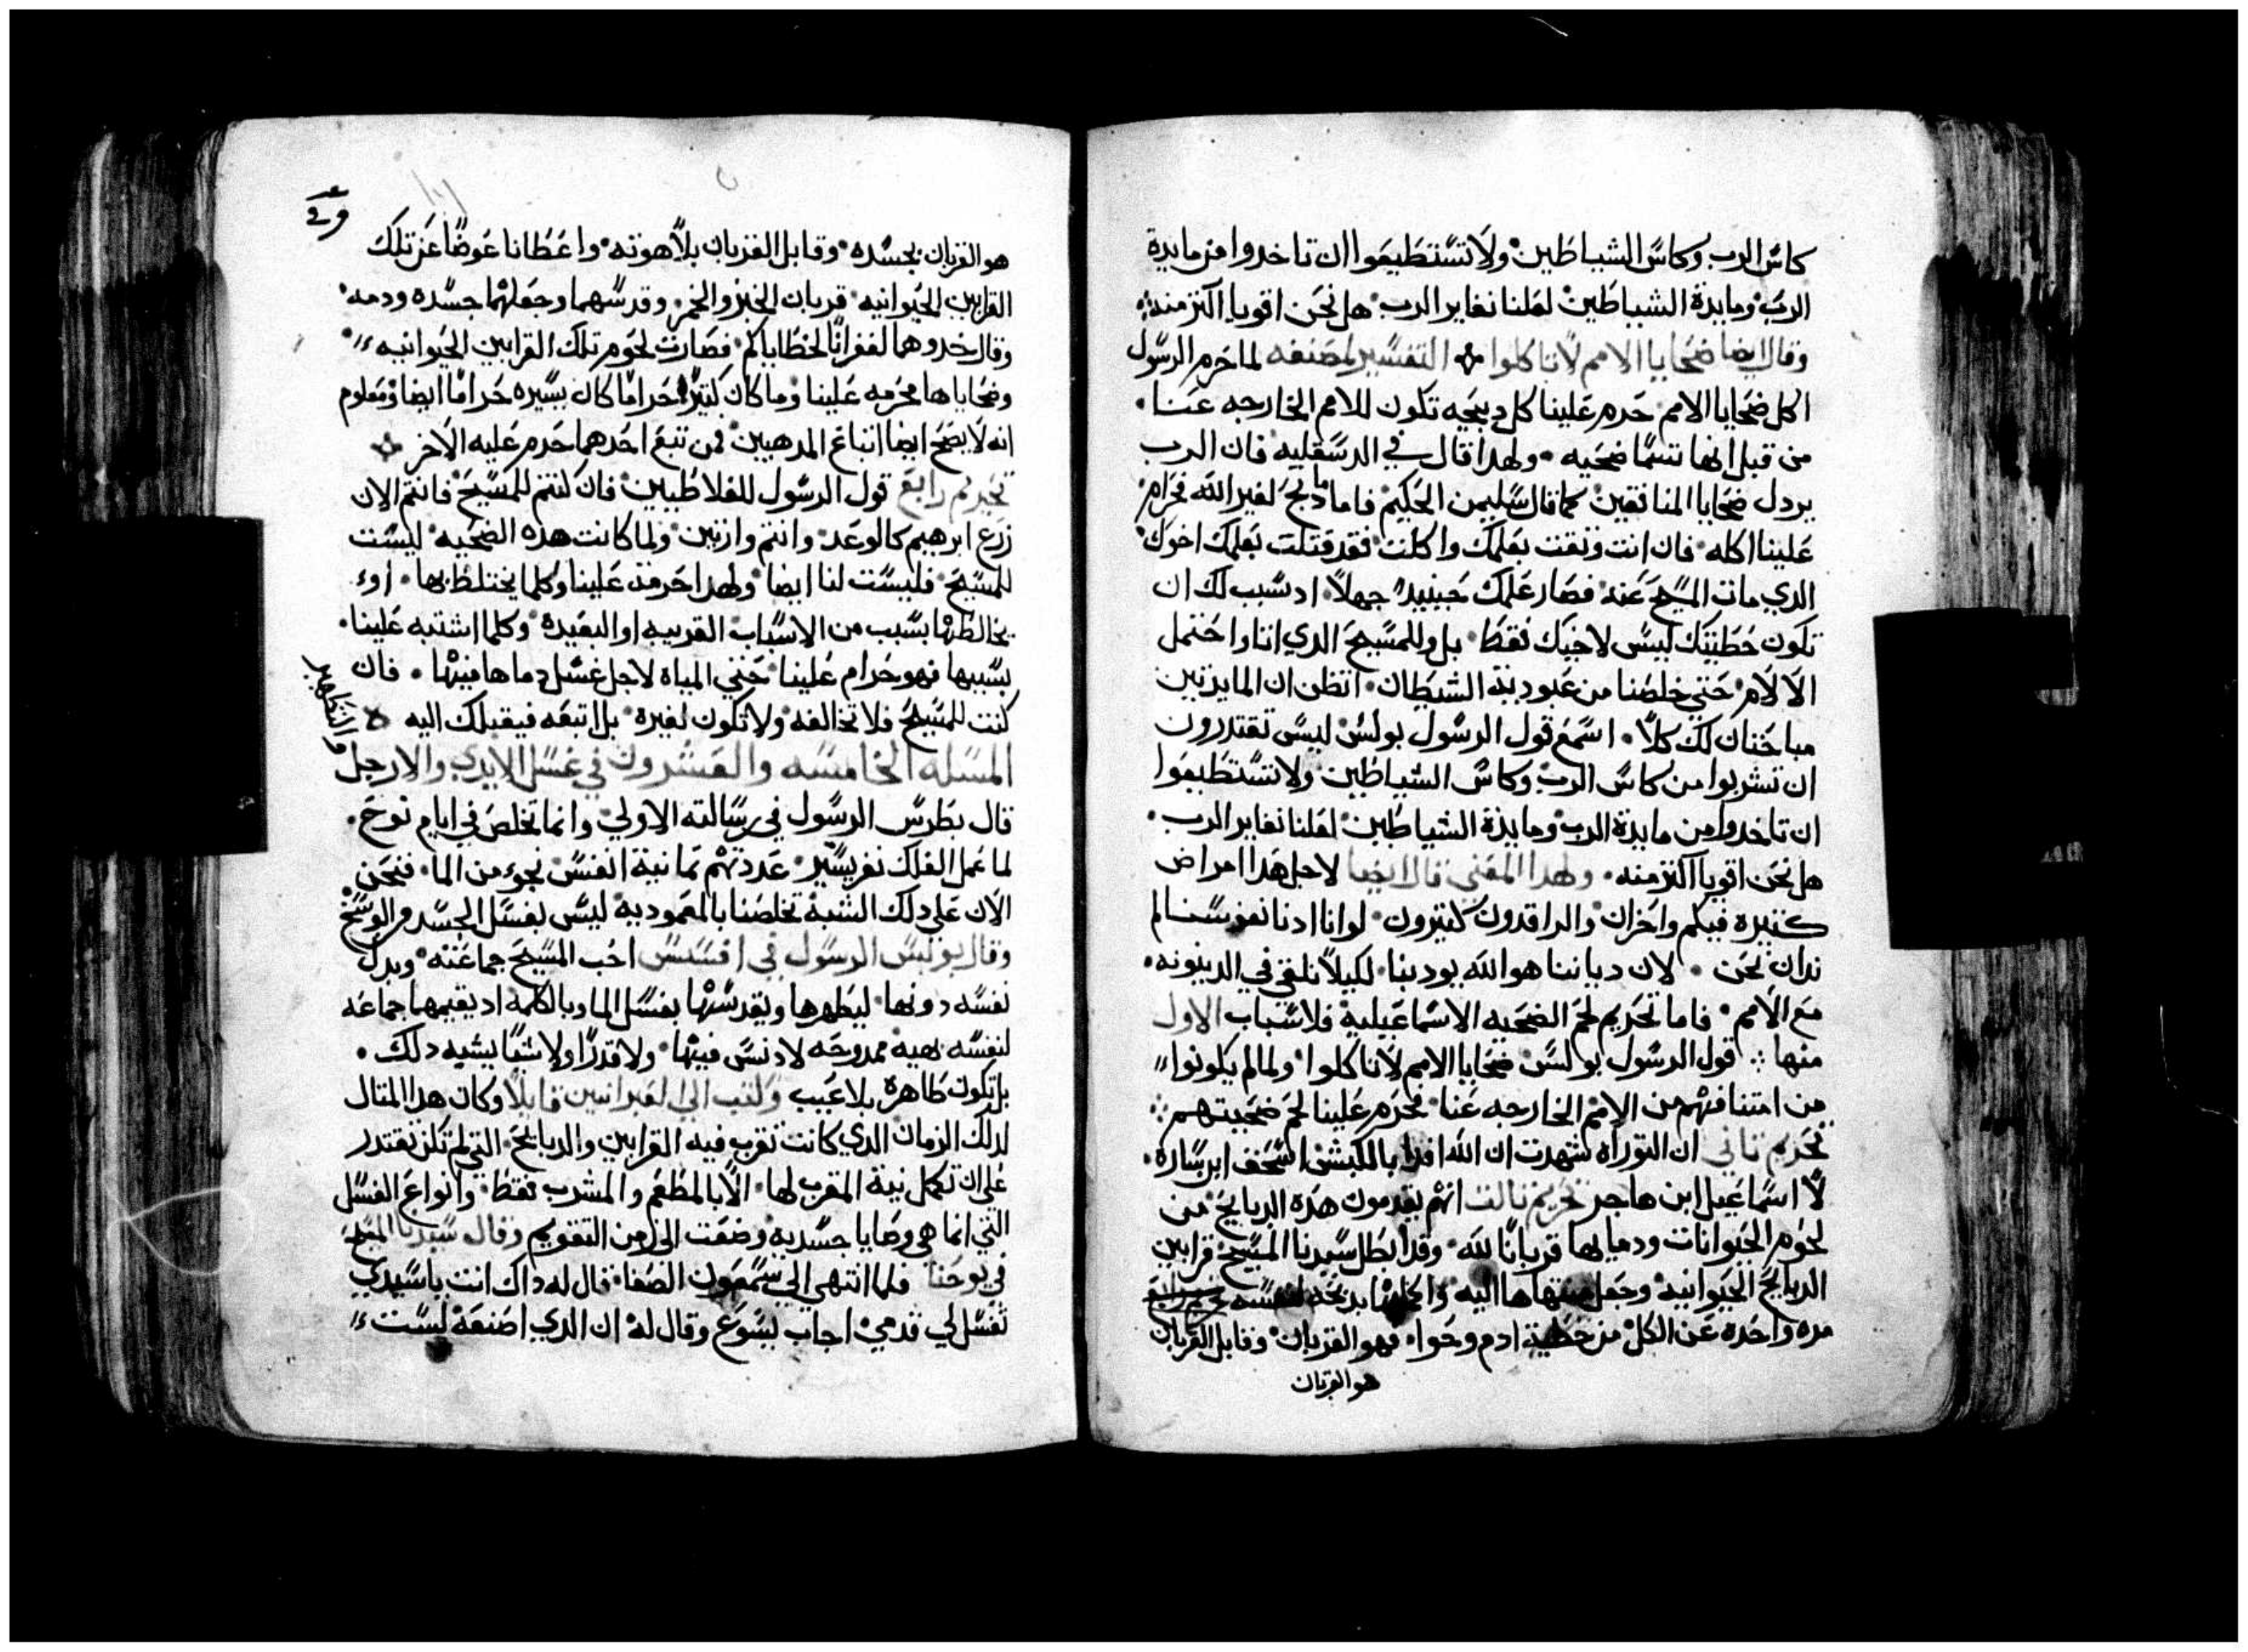 كاس الرب وكاس الشياطين ولا تستطيعوا ان تاخدوا من مايدة
الرب ومايدة الشياطين لعلنا نغاير الرب هل نحن اقويا اكتر منه
وقال ايضا ضحايا الامم لا تاكلوا التفسير لمصنفه لما حرم الرسول
اكل ضحايا الامم حرم علينا كل دبيحه تكون للامم الخارجه عنا
من قبل انها تتسما ضحيه ولهدا قال في الدسقليه فان الرب
يردل ضحايا المنافقين كما قال سليمن الحكيم فاما ما دبح لغير الله فحرام
علينا اكله فان انت وتقت بعلمك واكلت فقد قتلت بعلمك اخوك
الدي مات المسيح عنه فصار علمك حينيد جهلا اد سبب لك ان
تكون خطيتك ليس لاخيك فقط بل وللمسيح الدي اتا واحتمل
الالام حتي خلصنا من عبودية الشيطان اتظن ان المايدتين
مباحتان لك كلا اسمع قول الرسول بولس ليس تقتدرون
ان تشربوا من كاس الرب وكاس الشياطين ولا تستطيعوا
ان تاخدوا من مايدة الرب ومايدة الشياطين لعلنا نغاير الرب
هل نحن اقويا اكتر منه ولهدا المعني قال ايضا لاجل هدا امراض
كتيره فيكم واحزان والراقدون كتيرون لو اننا ادنا نفوسنا لم
ندان نحن لان دياننا هو الله يودبنا لكيلا نلقي في الدينونه
مع الامم فاما تحريم لحم الضحيه الاسماعيلية فلاسباب الاول
منها قول الرسول بولس ضحايا الامم لا تاكلوا ولما لم يكونوا
من امتنا فهم من الامم الخارجه عنا فحرم علينا لحم ضحيتهم
تحريم تاني ان التوراه شهدت ان الله افدا بالكبش اسحق ابن ساره
لا اسماعيل ابن هاجر تحريم تالت انهم يقدمون هده الدبايح من
لحوم الحيوانات ودمايها قربانا لله وقد ابطل سيدنا المسيح قرابين
الدبايح الحيوانيه وجعل منتهاها اليه بدبحه نفسه
مره واحده عن الكل من خطية ادم وحوا فهو القربان وقابل القربان
هو القربان
هو القربان بجسده وقابل القربان بلاهوته واعطانا عوضا عن تلك
القرابين الحيوانيه قربان الخبز والخمر وقدسهما وجعلهما جسده ودمه
وقال خدوهما لغفرانا لخطاياكم فصارت لحوم تلك القرابين الحيوانيه
وضحاياها محرمه علينا وما كان كتيره حراما كان يسيره حراما ايضا ومعلوم
انه لا يصح ايضا اتباع المدهبين فمن تبع احدهما حرم عليه الاخر
تحريم رابع قول الرسول للغلاطيين فان كنتم للمسيح فانتم الان
زرع ابرهيم كالوعد وانتم وارتين ولما كانت هده الضحيه ليست
للمسيح فليست لنا ايضا ولهدا حرمت علينا وكلما يختلط بها او
يخالطها بسبب من الاسباب القريبه او البعيده وكلما اشتبه علينا
بسببها فهو حرام علينا حتي المياه لاجل غسل دماها فيها فان
كنت للمسيح فلا تخالفه ولا تكون لغيره بل اتبعه فيقبلك اليه
المسله الخامسه والعشرون في غسل الايدي والارجل
قال بطرس الرسول في رسالته الاولي وانما تخلص في ايام نوح
لما عمل الفلك نفر يسير عددتهم تمانية انفس نجو من الما فنحن
الان علي دلك الشبه تخلصنا بالمعموديه ليس بغسل الجسد من الوسخ
وقال بولس الرسول في افسس احب المسيح جماعته وبدل
نفسه دونها ليطهرها ويقدسها بغسل الما وبالكلمه اد يقيمها جماعه
لنفسه بهيه ممدوحه لا دنس فيها ولا قدرا ولا شيا يشبه دلك
بل تكون طاهره بلا عيب وكتب الي العبرانيين قايلا وكان هدا المتال
لدلك الزمان الدي كانت تقرب فيه القرابين والدبايح التي لم تكن تقتدر
علي ان تكمل نية المقرب لها الا بالمطعم والمشرب فقط وانواع الغسل
التي انما هي وصايا جسديه وضعت الي زمن التقويم وقال سيدنا المسيح
في يوحنا فلما انتهي الي سمعون الصفا قال له داك انت يا سيدي
تغسل لي قدمي اجاب يسوع وقال له ان الدي اصنعه لست